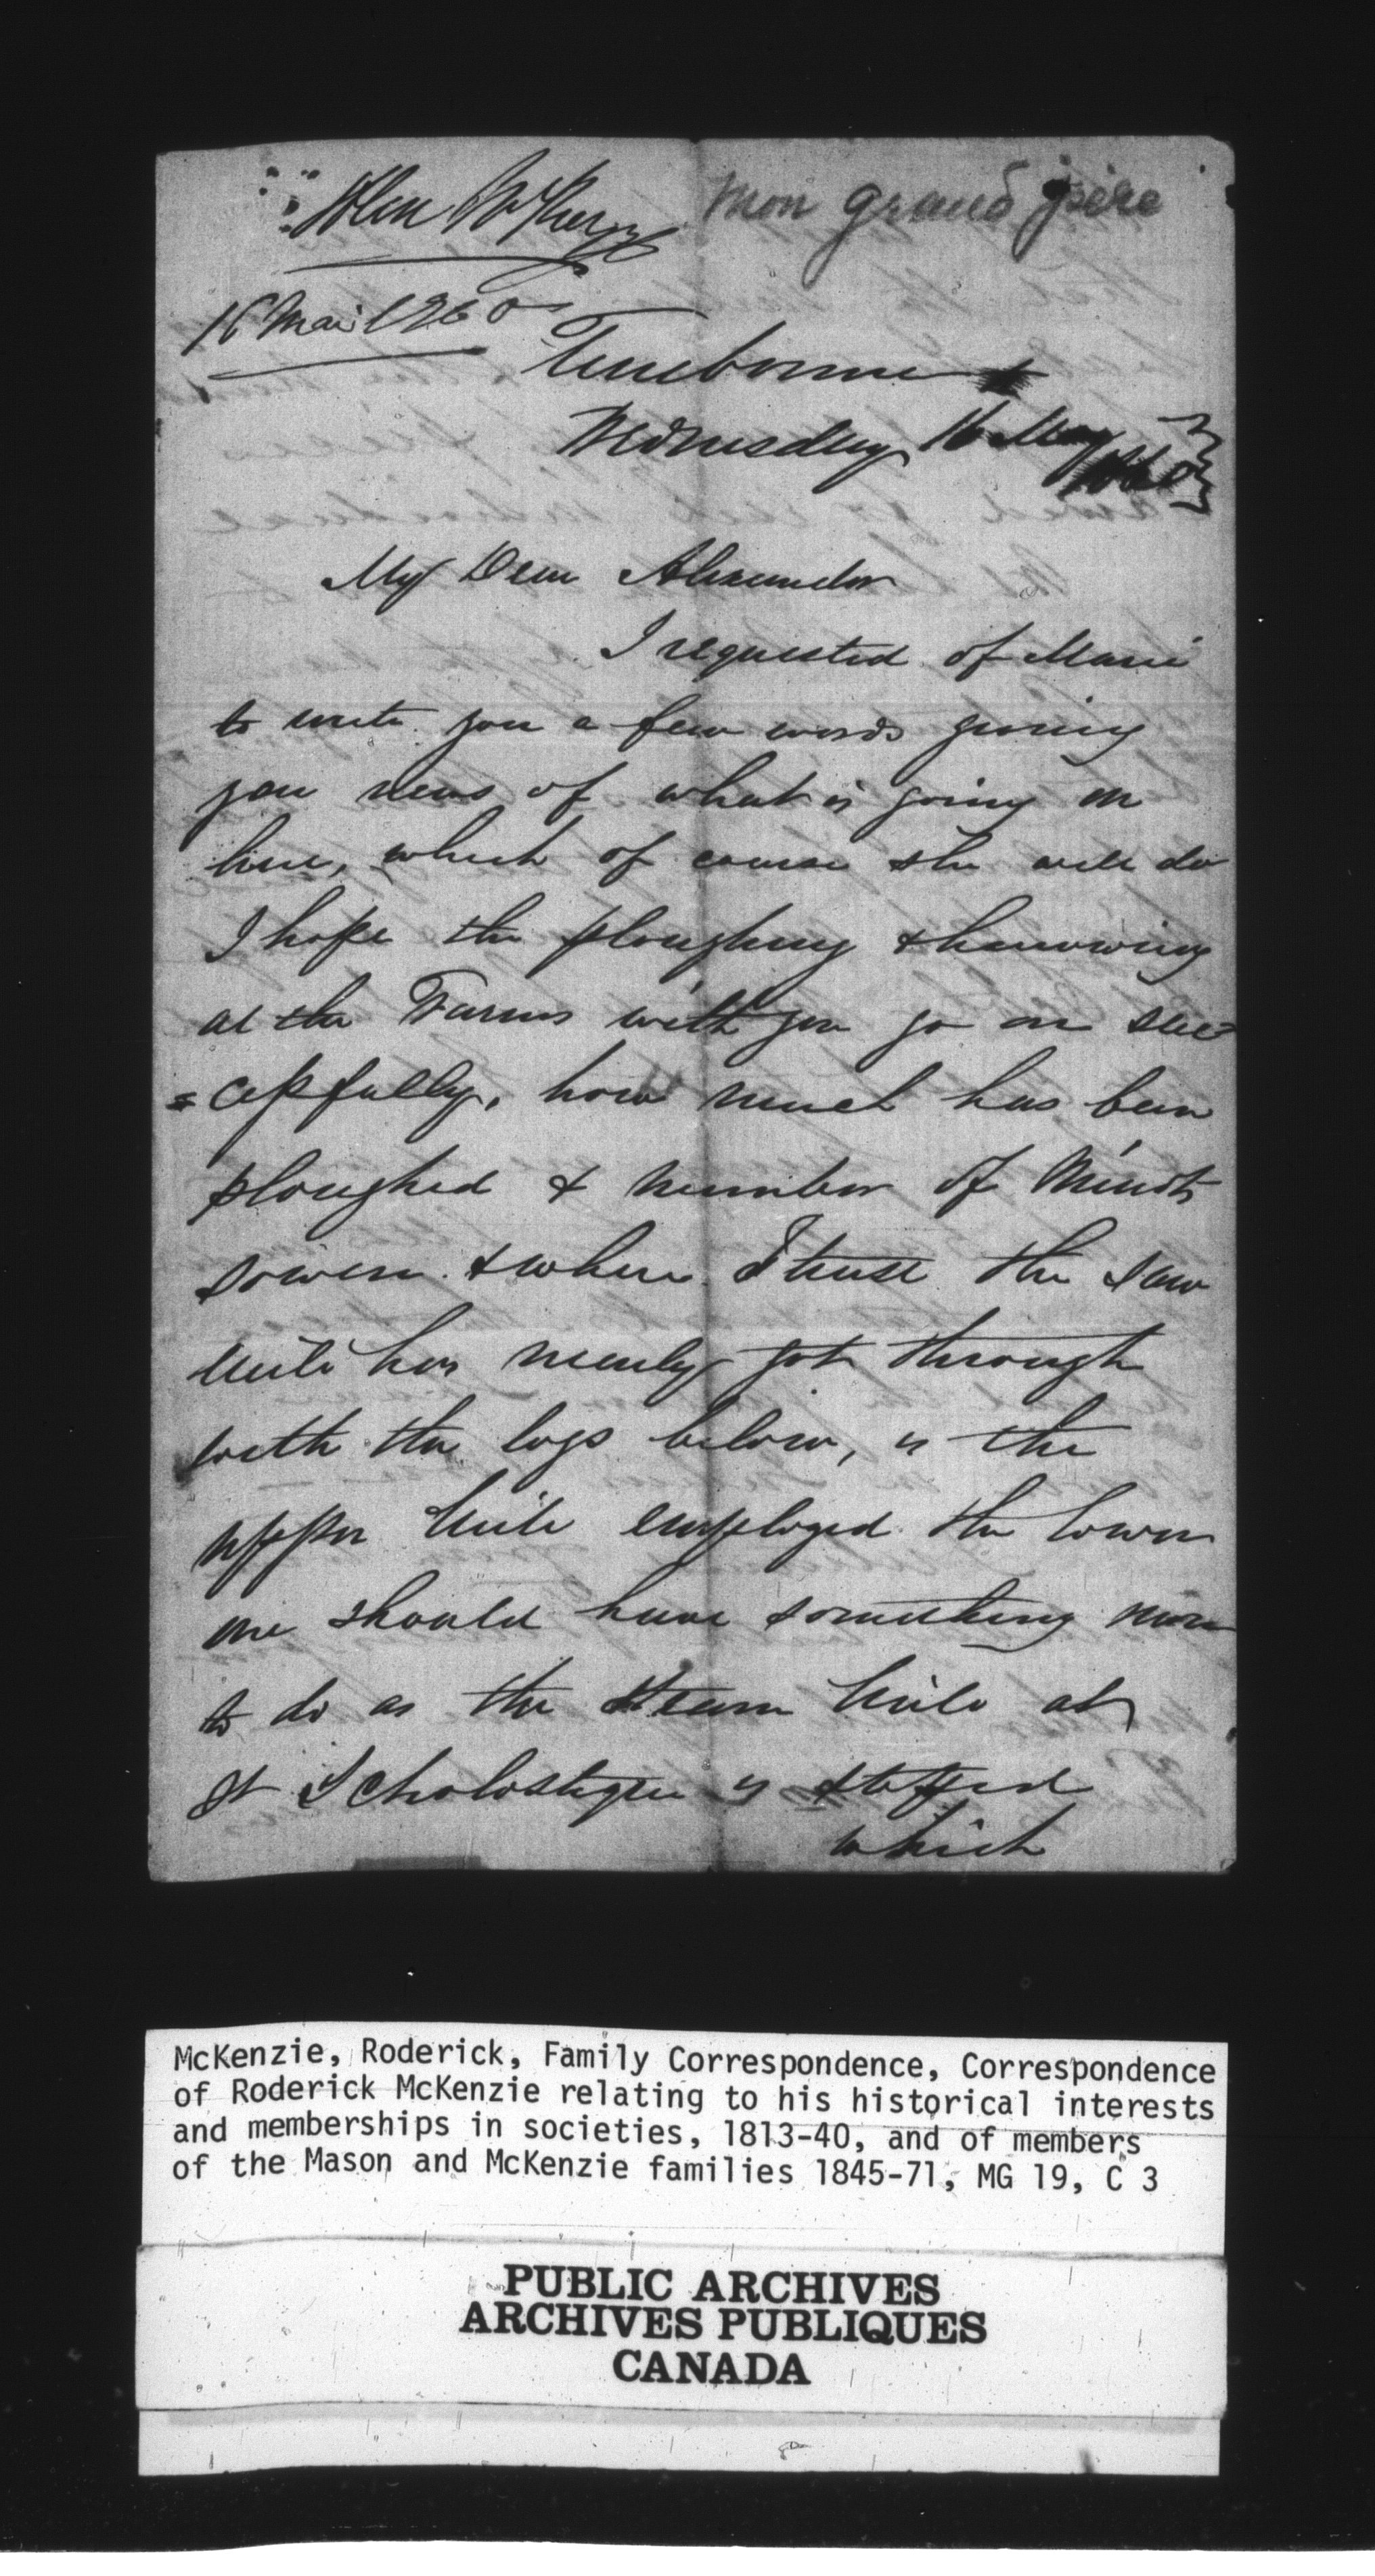 Alex McKenzie
mon grand père
16 Mai 1860
Terrebonne
Wednesday 16 May
1860
My Dear Alexander
I requested of Marie
to write you a few words giving
you news of what is going on
here, which of course she will do
I hope the ploughing & harrowing
at the Farms with you go on suc
=cessfully, how much has been
ploughed & number of Minots
sowen & where I trust the saw
Mill has nearly got through
with the logs below, is the
upper Mill employed the lower
one should have something more
to do as the steam Mill at
St Scholastique is stopped
which
McKenzie, Roderick, Family Correspondence, Correspondence
of Roderick McKenzie relating to his historical interests
and memberships in societies, 1813-40, and of members
of the Mason and McKenzie families 1845-71, MG 19, C 3
PUBLIC ARCHIVES
ARCHIVES PUBLIQUES
CANADA